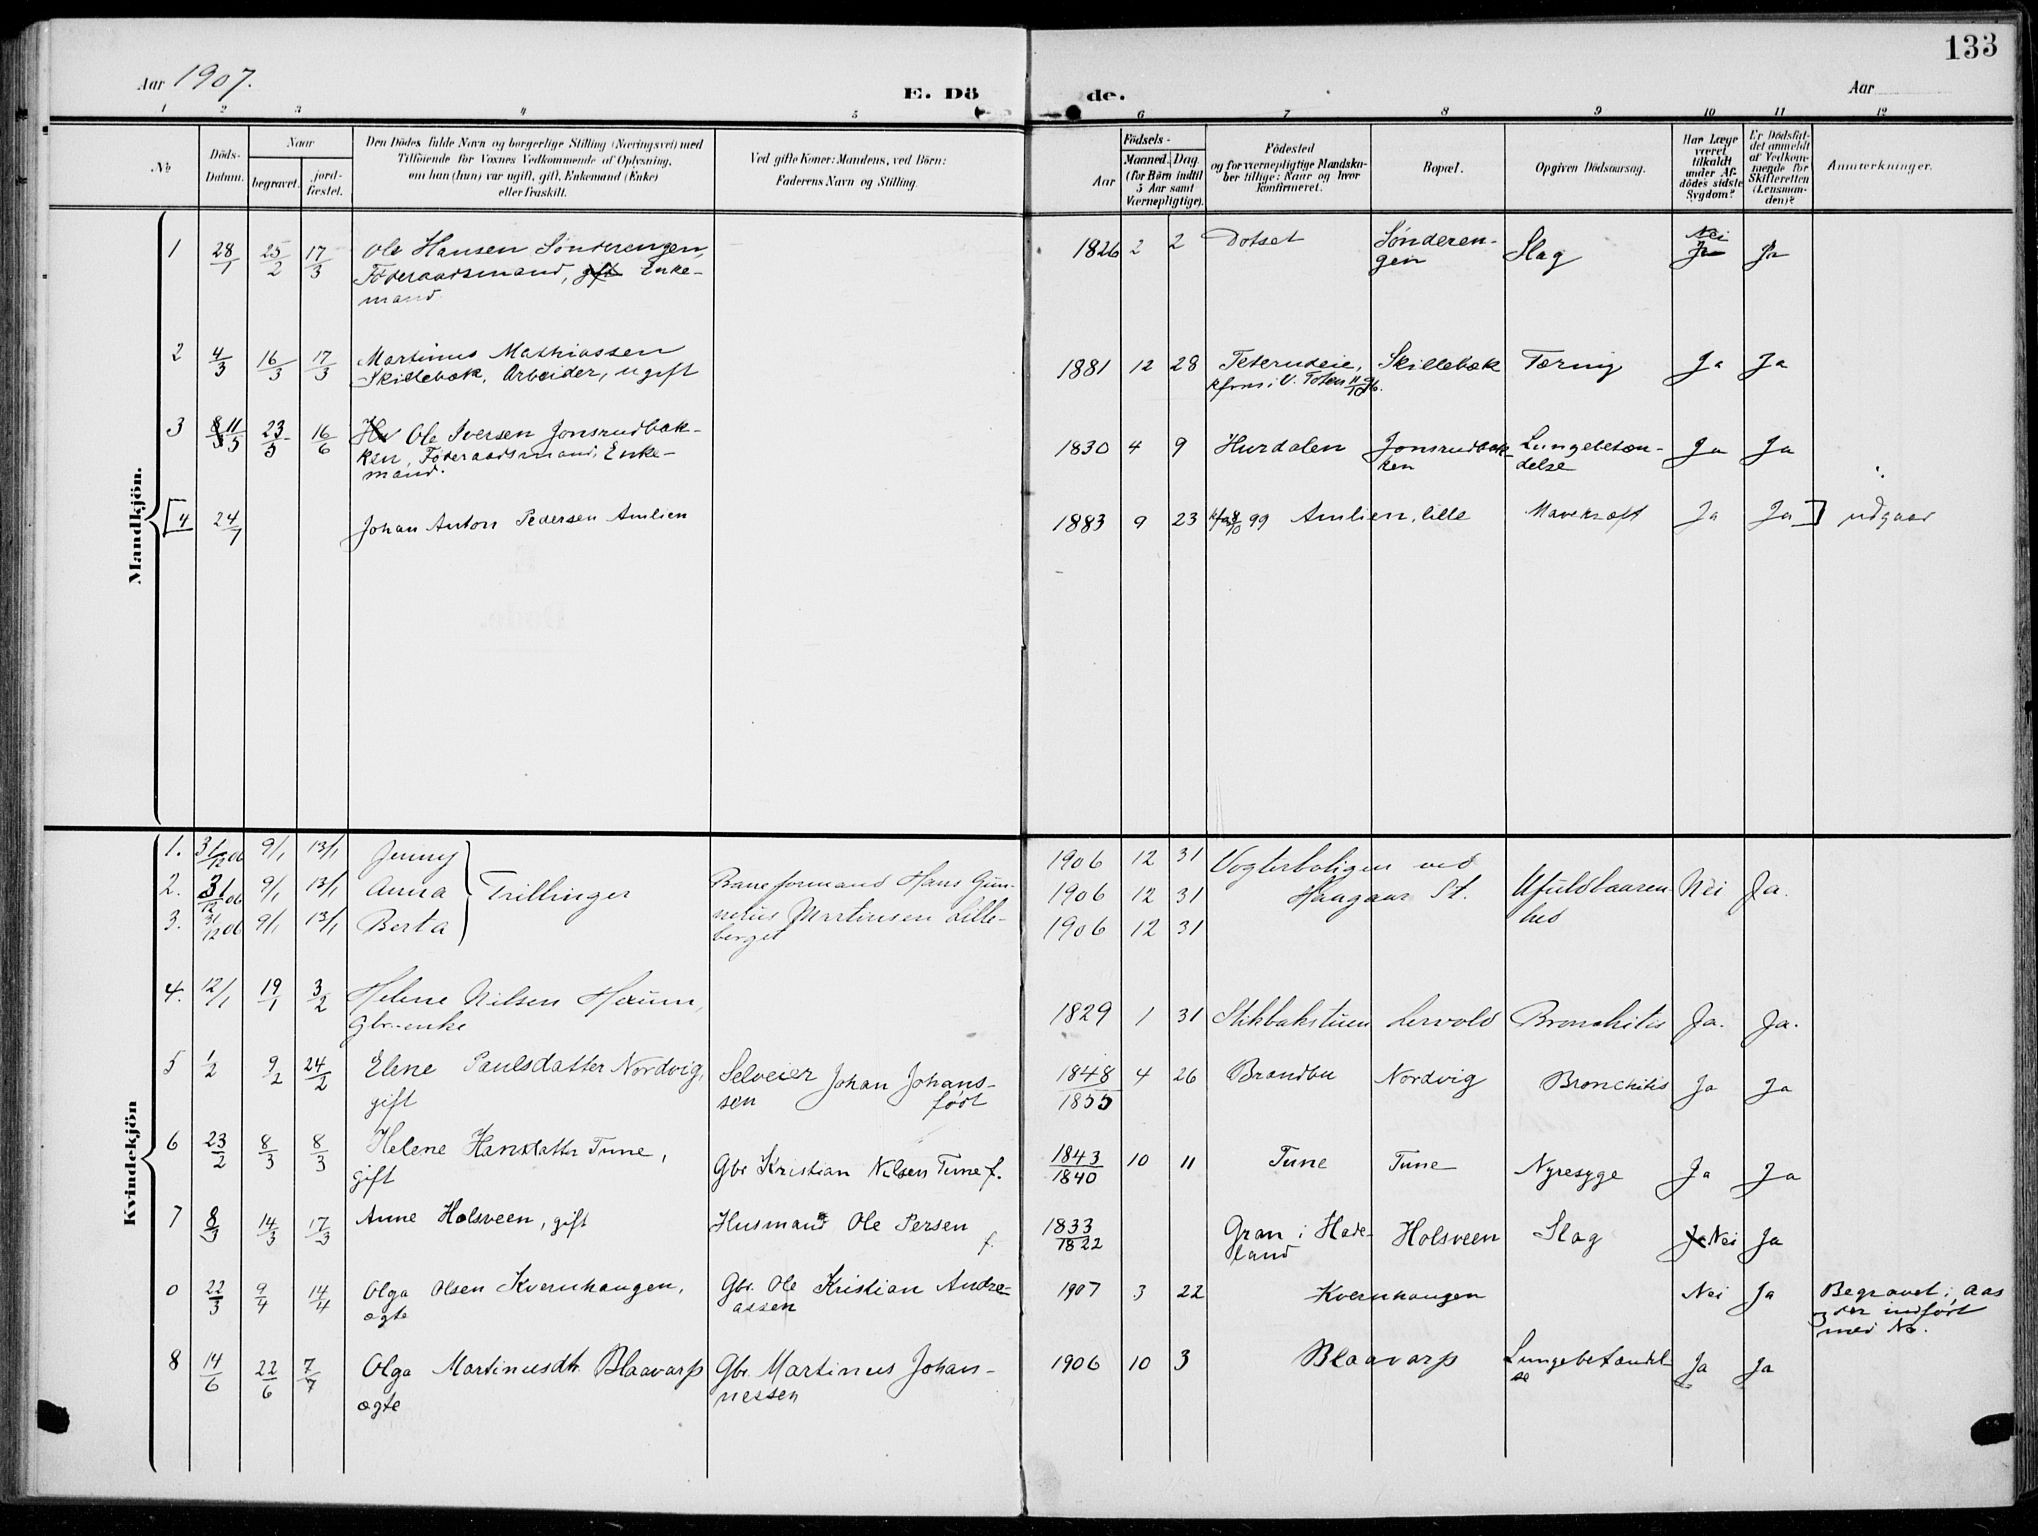 133
Aar 1907.
E. Dö
de.
Aar
1 2 3 4 5 6 7 8 9 10 11 12
No
Döds-
Datum.
Naar
begravet.
jord-
fæstet.
Den Dödes fulde Navn og borgerlige Stilling (Næringsvei) med
Tilföiende for Voxnes Vedkommende af Oplysning,
om han (hun) var ugift, gift, Enkemand (Enke)
eller fraskilt.
Ved gifte Koner: Mandens, ved Börn:
Faderens Navn og Stilling.
Födsels-
Aar
Maaned. Dag
(for Börn indtil
5 Aar samt
Værnepligtige).
Födested
og for værnepligtige Mandska-
ber tillige: Naar og hvor
konfirmeret.
Bopæl.
Opgiven Dödsaarsag.
Har Læge
været
tilkaldt
under Af-
dödes sidste
Sygdom?
Er Dödsfal-
det anmeldt
af Vedkom-
mende for
Skifteretten
(Lensman-
den)?
Anmærkninger.
Mandkjön.
1 28/1 25/2 17/3 Ole Hansen Sönderengen, 1826 2 2 Dotset Sønderen- Slag Nei Ja
Föderaadsmand, gift Enke- gen Ja
mand.
2 4/3 16/3 17/3 Martinus Mathiassen 1881 12 28 Teterudeie, Skillebæk Tæring Ja Ja
Skillebæk, Arbeider, ugift kfrm i V. Toten 11/10 96.
3 8/3 11/5 23/5 16/6 Ole Iversen Jonsrudbak- 1830 4 9 Hurdalen Jonsrudbak- Lungebetæn- Ja Ja
ken, Föderaadsmand, Enke- ken delse
mand.
4 24/7 Johan Anton Pedersen Amlien 1883 9 23 kfm 8/10 99 Amlien, lille Mavekræft Ja Ja udgaar
Kvindekjön
1. 31/12 06 9/1 13/1 Jenny 1906 12 31 Vogterboligen ved
2. 31/12 06 9/1 13/1 Anna Trillinger Baneformand Hans Gun- 1906 12 31 Haugaar St. Ufuldbaaren- Nei Ja.
3. 31/12 06 9/1 13/1 Berta nerius Martinsen Lille- 1906 12 31 hed
berget
4. 12/1 19/1 3/2 Helene Nilsen Haum, 1829 1 31 Stikbakstuen Lervold Bronchitis Ja. Ja.
Gbr.-enke
5 1/2 9/2 24/2 Elene Paulsdatter Nordvig, Selveier Johan Johans- 1848 4 26 Brandbu Nordvig Bronchitis Ja Ja
gift sen født 1855
6 23/2 8/3 8/3 Helene Hansdatter Tune, Gbr Kristian Nilsen Tune f. 1843 10 11 Tune Tune Nyresyge Ja Ja
gift 1840
7 8/3 14/3 17/3 Anne Holsveen, gift Husmand Ole Persen 1833 Gran i Hade- Holsveen Slag Ja Nei Ja
f. 1822 land
0 22/3 9/4 14/4 Olga Olsen Kvernhaugen, Gbr. Ole Kristian Andre- 1907 3 22 Kvernhaugen Nei Ja Begravet i Aas
ægte assen og der indført
med No.
8 14/6 22/6 7/7 Olga Martinusdtr Blaavarp Gbr. Martinus Johan- 1906 10 3 Blaavarp Lungebetændel- Ja Ja
ægte nessen se